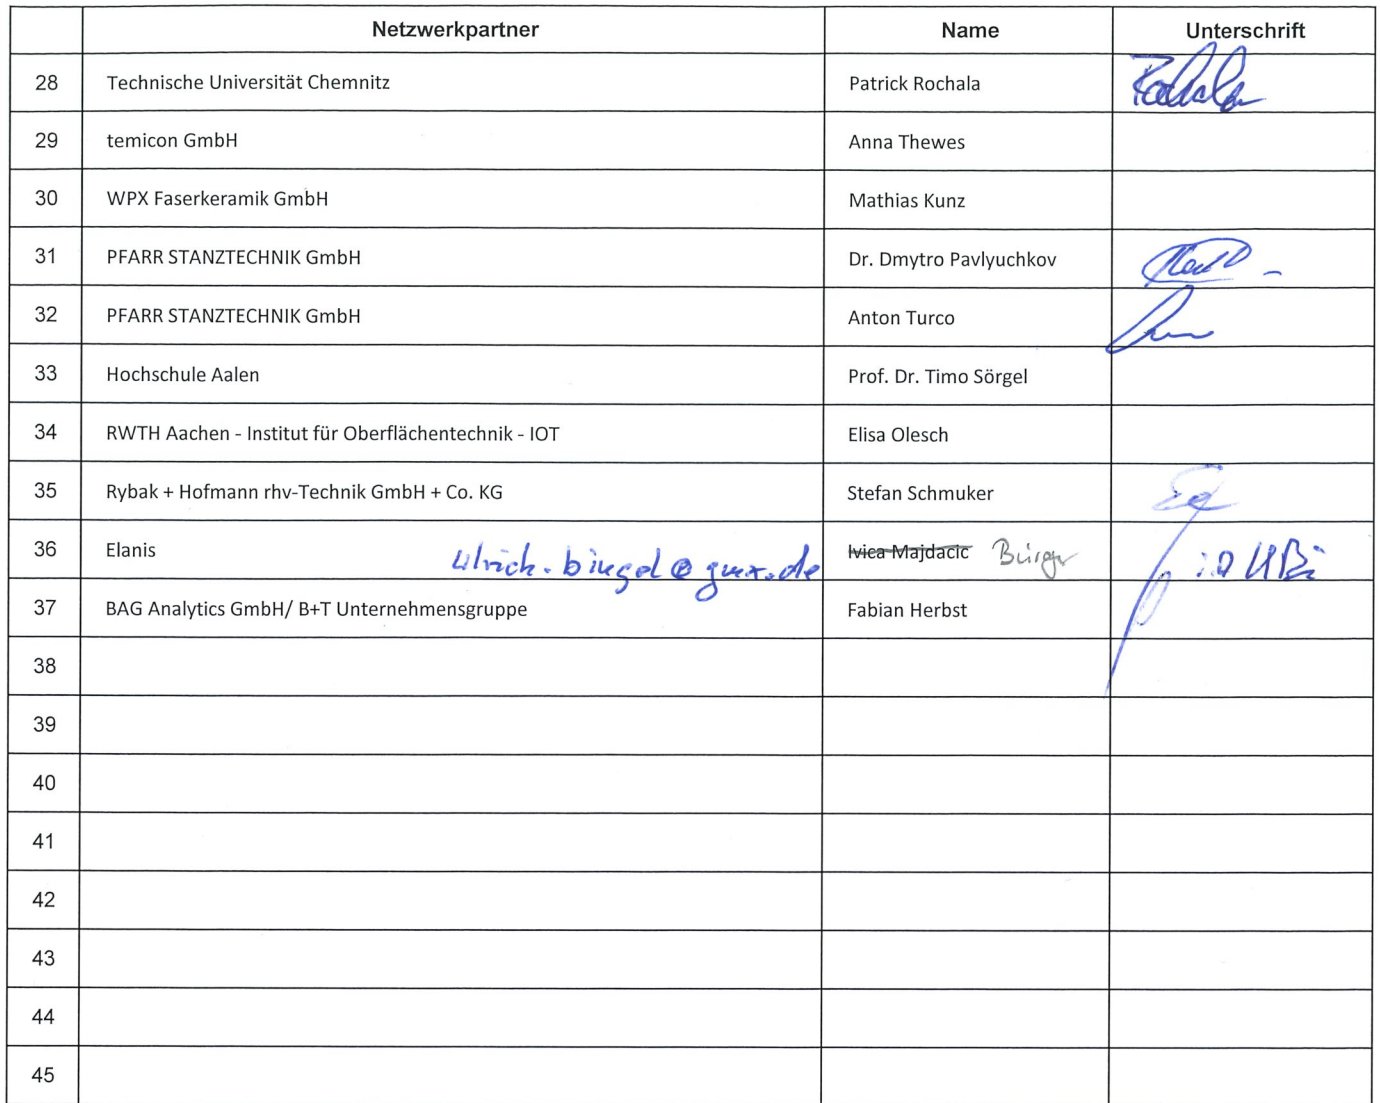 Netzwerkpartner Name Unterschrift
28 Technische Universität Chemnitz Patrick Rochala Rochala
29 temicon GmbH Anna Thewes
30 WPX Faserkeramik GmbH Mathias Kunz
31 PFARR STANZTECHNIK GmbH Dr. Dmytro Pavlyuchkov
32 PFARR STANZTECHNIK GmbH Anton Turco
33 Hochschule Aalen Prof. Dr. Timo Sörgel
34 RWTH Aachen - Institut für Oberflächentechnik - IOT Elisa Olesch
35 Rybak + Hofmann rhv-Technik GmbH + Co. KG Stefan Schmuker
36 Elanis Ivica Majdacic
37 BAG Analytics GmbH/ B+T Unternehmensgruppe Fabian Herbst
38
39
40
41
42
43
44
45